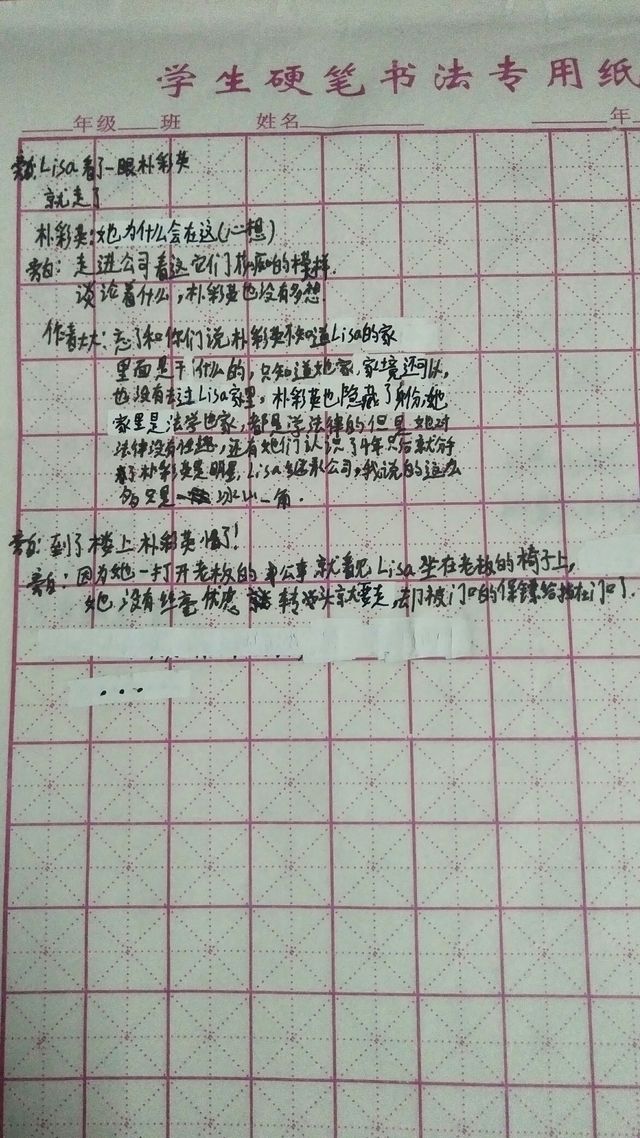 学生硬笔书法专用纸
年级 班 姓名 年
旁白:Lisa看了一眼朴彩英
就走了
朴彩英:她为什么会在这(心想)
旁白:走进公司看这它们 的模样.
谈论着什么,朴彩英也没有多想.
作者大大:忘了和你们说,朴彩英不知道Lisa的家
里面是干什么的,只知道她家,家境还可以,
也没有去过Lisa家里,朴彩英也隐藏了身份,她
家里是法学世家,都是学法律的但是她对
法律没有任趣,还有她们认识了 年只后就分
了朴彩英是明星,Lisa继承公司,我说的这么
多只是 冰山一角.
旁白:到了楼上朴彩英 了!
旁白:因为她一打开老板的 公室就看见Lisa坐在老板的椅子上,
她没有丝毫犹豫 转 头就要走, 被门口的保镖给拦在门口了.
...